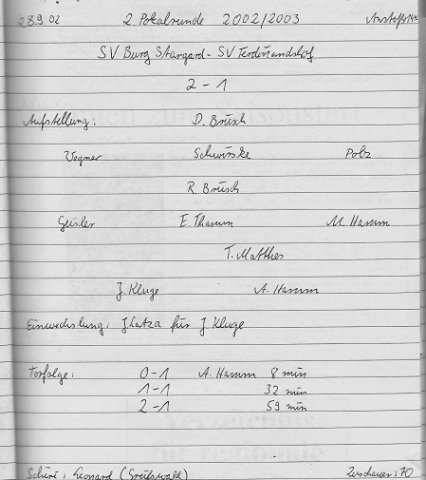 28.9.02 2. Pokalrunde 2002/2003
SV Burg Stargard - SV Ferdinandshof
2 - 1
Aufstellung: D. Brüsch
Wegner Schwirske Polz
R. Brüsch
Geisler E. Thamm M. Hamm
T. Matthes
J. Kluge A. Hamm
Einwechslung: für J. Kluge
Torfolge: 0-1 A. Hamm 8 min
1-1 32 min
2-1 59 min
Schiri: Leonard (Greifswald) Zuschauer: 70